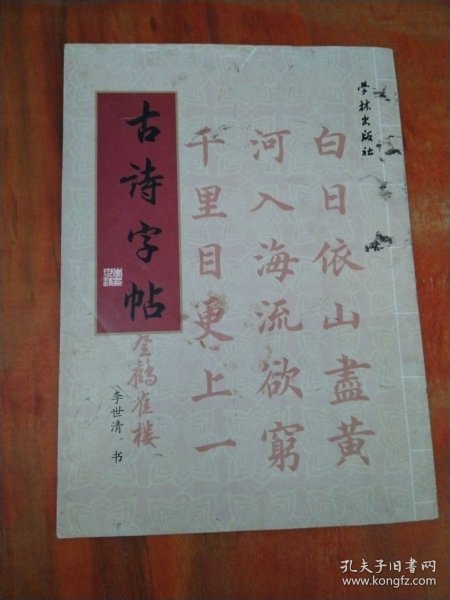 学林出版社
白日依山盡黄
河入海流欲窮
千里目更上一
登鹤雀楼
古诗字帖
李世清 书
孔夫子旧书网
www.kongfz.com